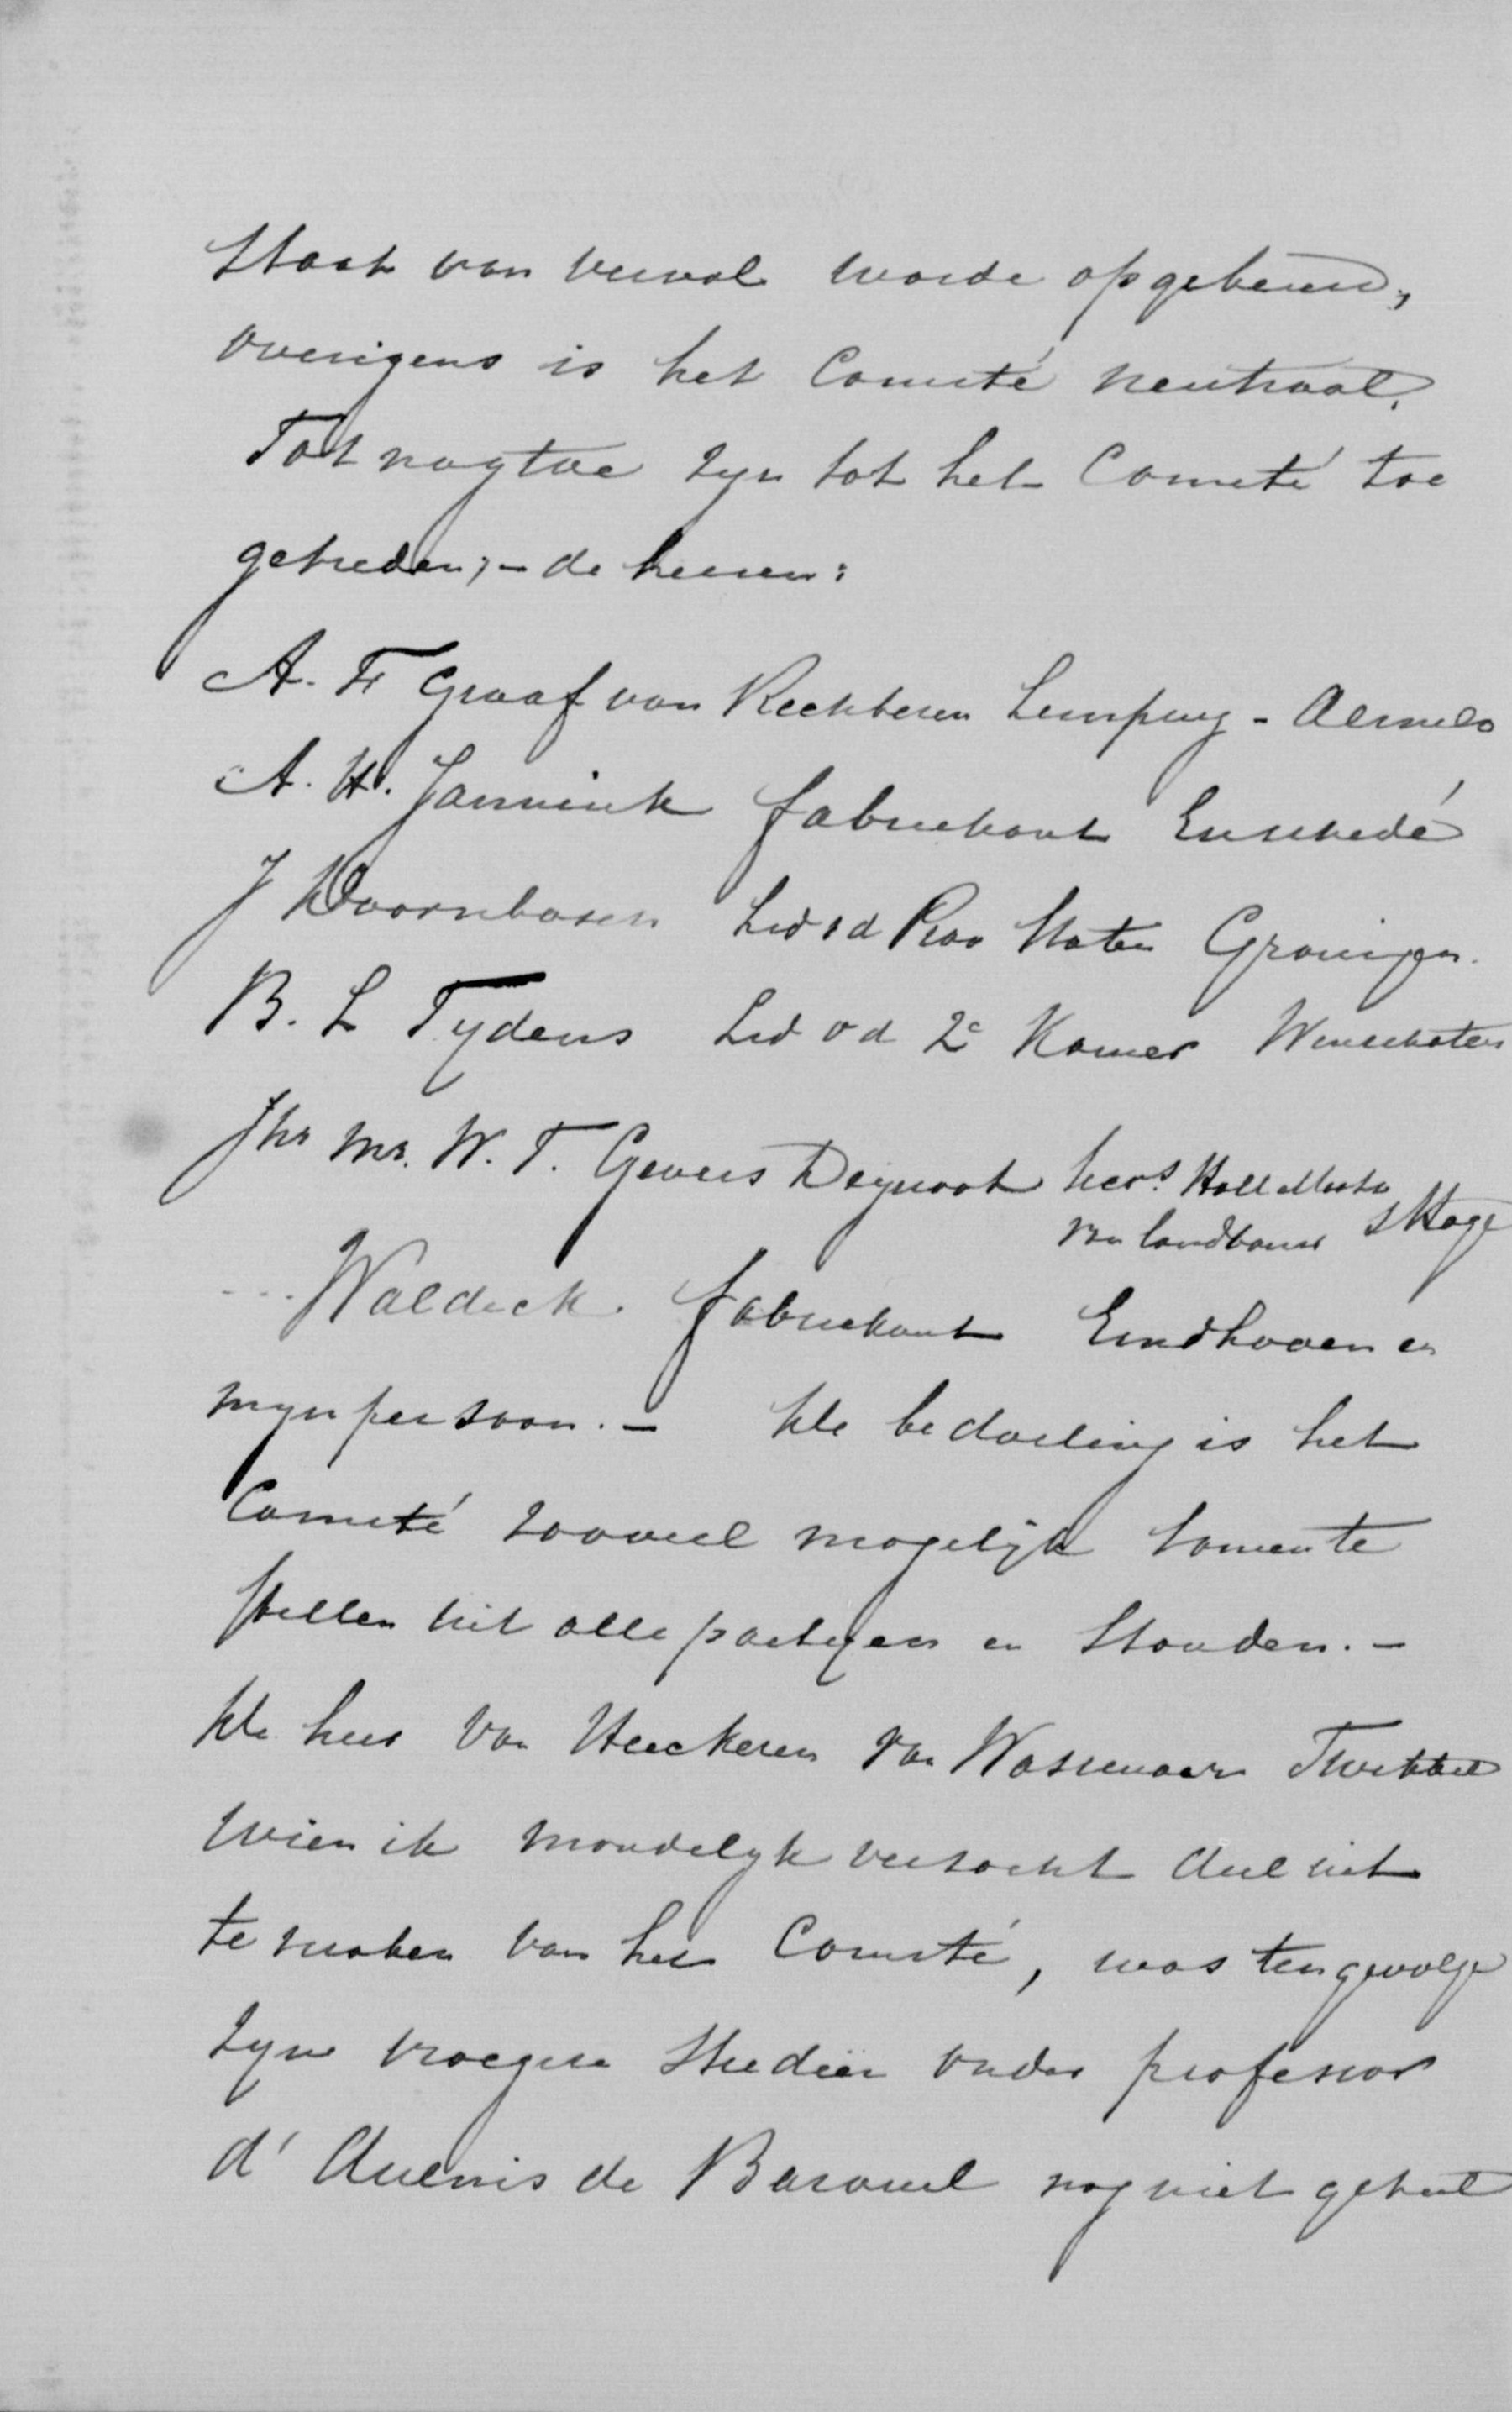 Staat van verval worde opgeheven,
overigens is het Comité neutraal.
Tot nogtoe zyn tot het Comité toe
getreden; - de heeren:
A. F Graaf van Rechteren Limpurg - Almelo
A. H. Jannink fabriekant Enschedé
J Doornbosch Lid v d Prov Staten Groningen.
B. L Tydens Lid v d 2e Kamer Winschoten
Jhr Mr. W. T. Gevers Deynoot Holl. Maats
van landbouw s Hage
... Waldeck. fabriekant Eindhoven en
mynpersoon. - De bedoeling is het
Comité zooveel mogelijk samente
stellen uit alle partyen en Standen. -
De heer Van Heeckeren van Wassenaer Twickel
wien ik mondelyk verzocht deel uit
te maken van het Comité, was tengevolge
zyne vroegere Studiën onder professor
d' Aulnis de Bourouill nog niet geheel